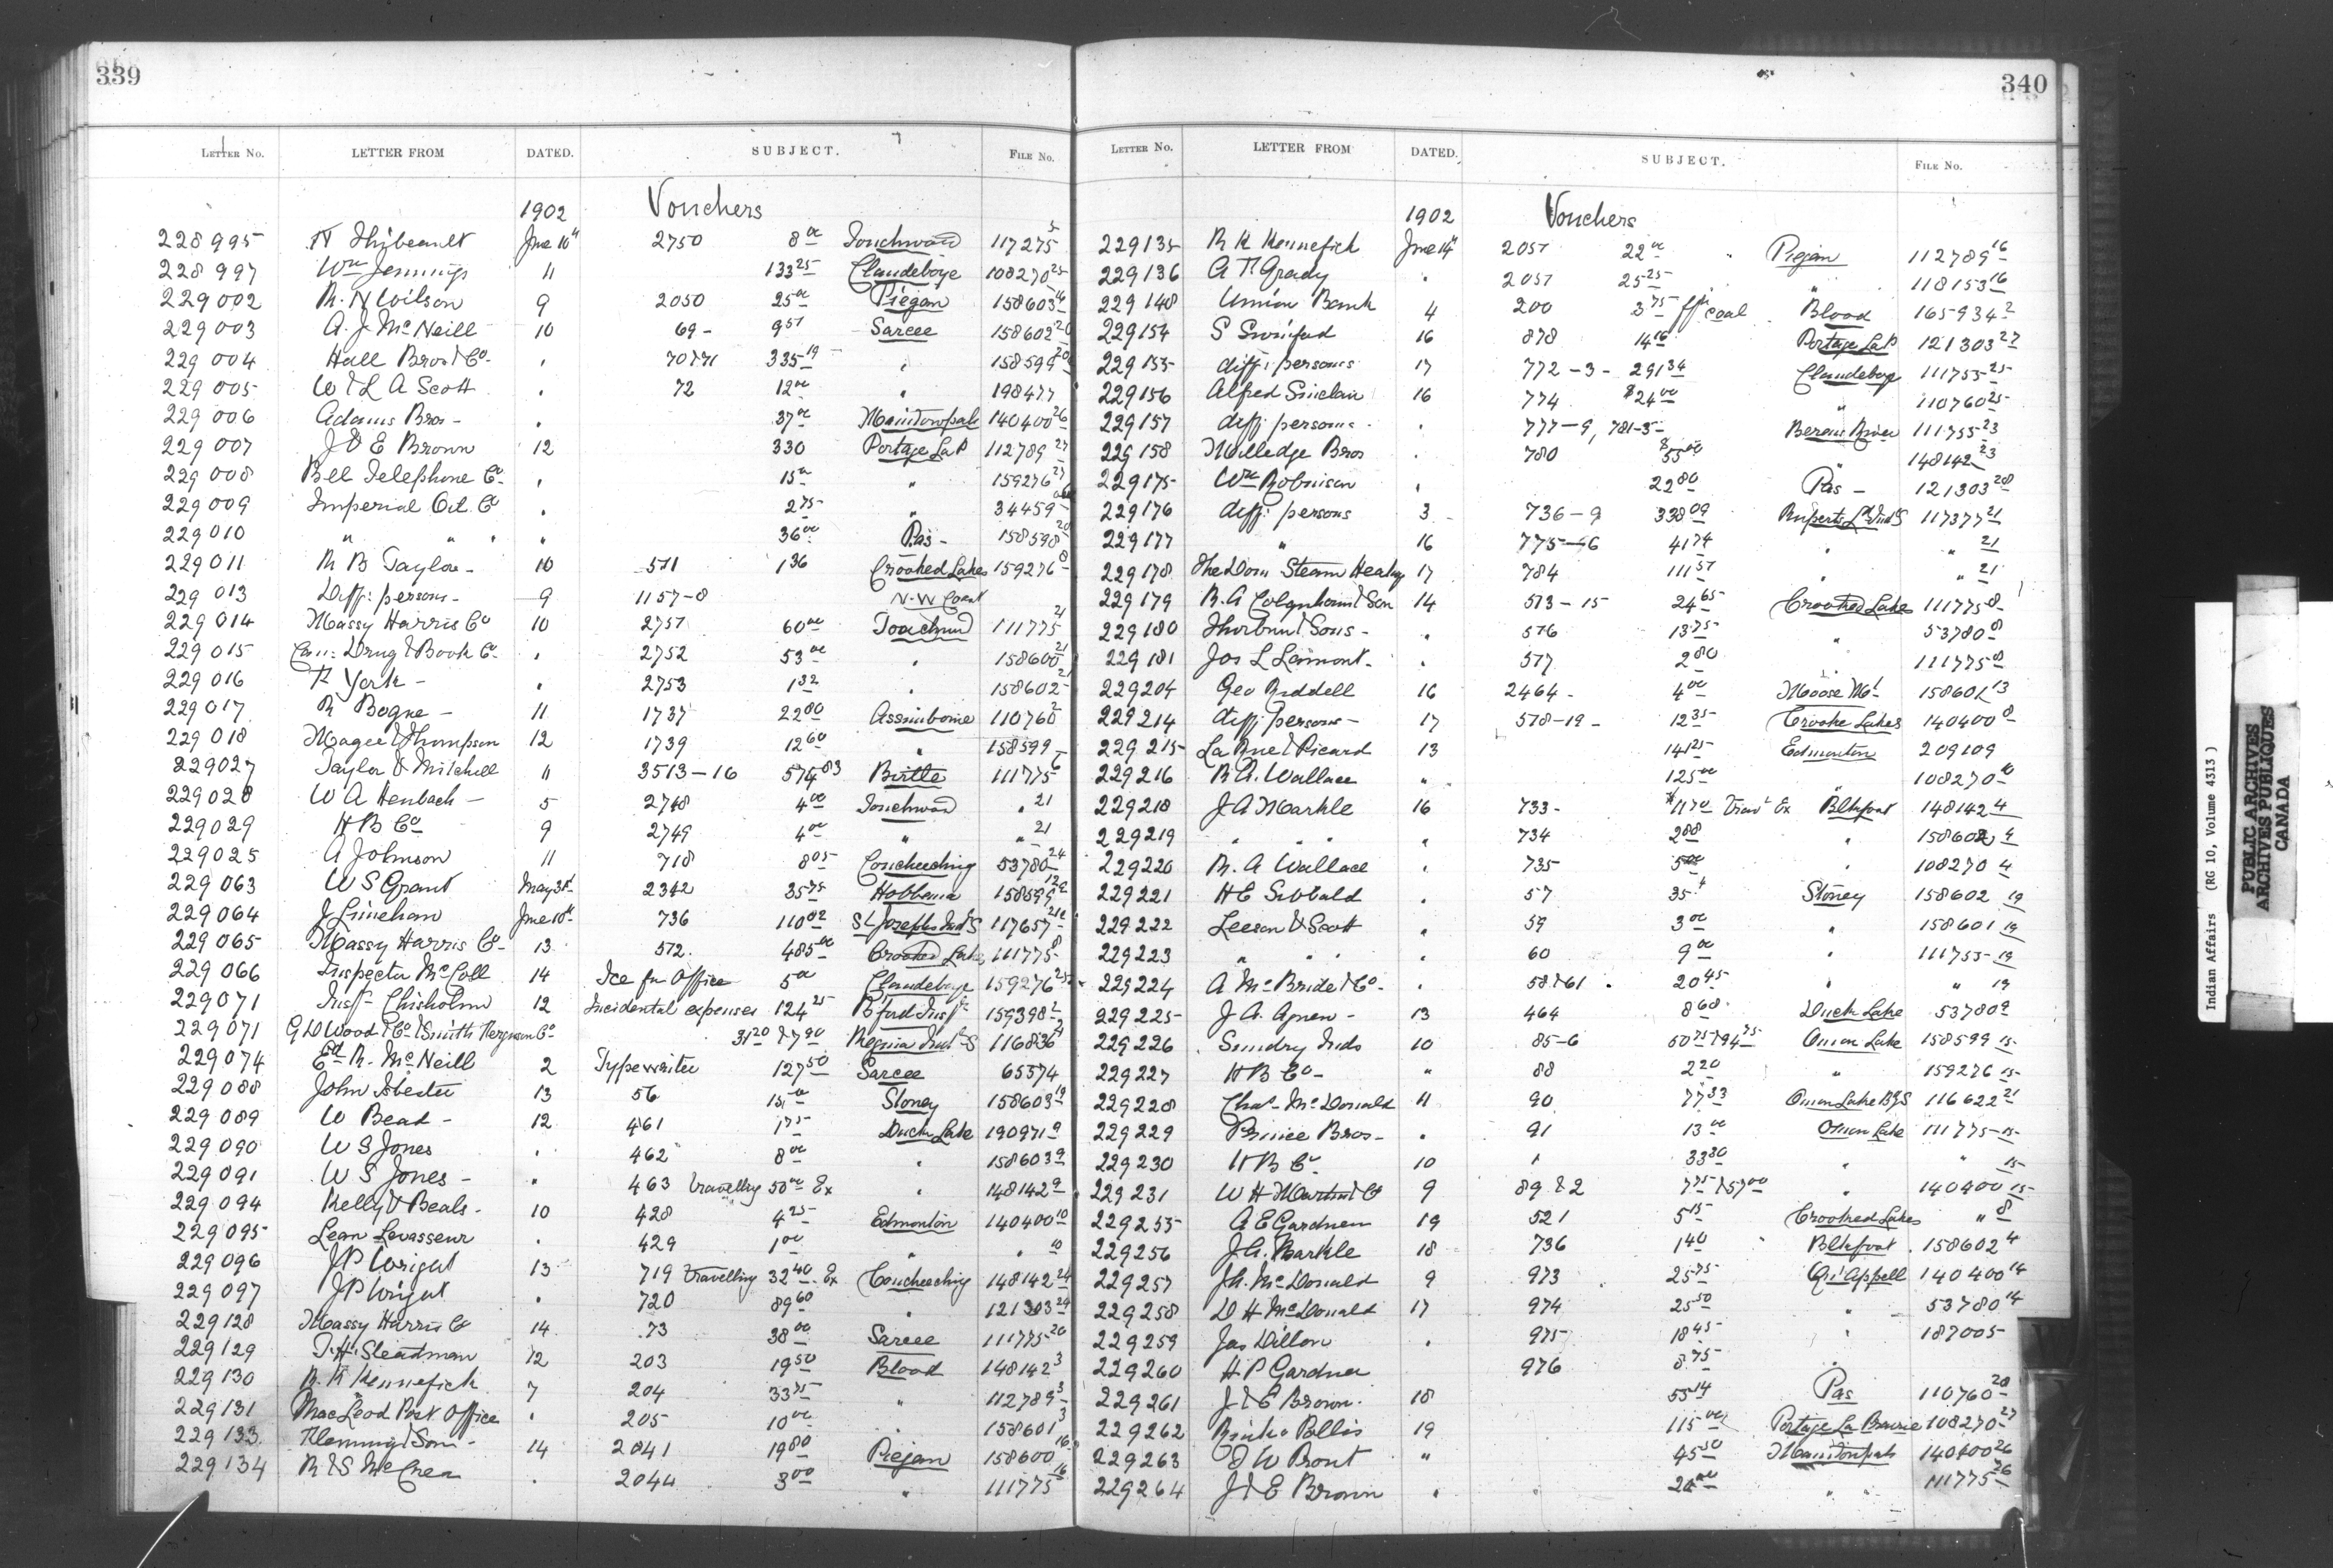 339
LETTER NO. LETTER FROM DATED. SUBJECT. FILE No.
1902 Vouchers
228995 H Thibeault June 10th 2750 8 00 Touchwood 117275 5
228997 Wm Jennings 11 133 25 Clandeboye 108270 25
229002 R. N Wilson 9 2050 25 00 Piegan 158603 16
229003 A. J. McNeill 10 69 - 9 51 Sarcee 158602 20
229004 Hall Bros & Co. " 70&71 335 19 " 158599 20
229005 W & L A Scott " 72 12 00 " 198477
229006 Adams Bros - " 37 00 Manitowpah 140400 26
229007 J & E Brown 12 330 Portage La P 112789 27
229008 Bell Telephone Co. " 15 00 " 159276 27
229009 Imperial Oil Co " 2 75 " 34459
229010 " " " " 36 00 Pas - 158598 20
229011 R B Taylor - 10 511 1 36 Crooked Lakes 159276 8
229013 Diff: persons - 9 1157-8 N.W Coast
229014 Massy Harris Co 10 2751 60 00 Touchwd 111775 21
229015 Can: Drug & Book Co. " 2752 53 00 " 158600 21
229016 F York - " 2753 1 32 " 158602 21
229017 R Bogue - 11 1737 22 00 Assiniboine 110760 2
229018 Magee & Thompson 12 1739 12 60 " 158599
229027 Taylor & Mitchell 11 3513-16 574 83 Birtle 111775 6
229028 W A Henbach - 5 2748 4 00 Touchwood " 21
229029 H B Co 9 2749 4 00 " " 21
229025 A Johnson 11 718 8 05 Coucheeching 53780 24
229063 W S Grant May 31st 2342 35 75 Hobbema 158599 12
229064 J Lineham June 10th 736 110 02 St Josephs Ind S 117657 21
229065 Massy Harris Co - 13 512 485 00 Crooked Lake 111775 8
229066 Inspector McColl 14 Ice for Office 5 00 Clandeboye 159276 25
229071 Insp Chisholm 12 Incidental expenses 124 25 B'ford Insp 159398 2
229071 G D Wood & Co & Smith Ferguson Co 31 20 & 7 90 Regina Ind S 116836
229074 Ed. R. McNeill 2 Typewriter 127 50 Sarcee 65574
229088 John Isbester 13 56 15 00 Stoney 158603 19
229089 W Bead - 12 461 1 75 Duck Lake 190971 9
229090 W S Jones " 462 8 00 " 158603 9
229091 W S Jones - " 463 travelling 50 00 Ex " 148142 9
229094 Kelly & Beals - 10 428 4 25 Edmonton 140400 10
229095 Leon Levasseur " 429 1 00 " " 10
229096 J P Wright 13 719 travelling 32 40 Ex Coucheeching 148142 24
229097 J P Wright " 720 89 60 " 121303 24
229128 Massy Harris Co 14 73 38 00 Sarcee 111775 20
229129 T. H. Steadman 12 203 19 50 Blood 148142 3
229130 R. K Kennefick 7 204 33 75 " 112789 3
229131 MacLeod Post Office " 205 10 00 " 158601 3
229133 Fleming & Son - 14 2041 19 80 Piegan 158600 16
229134 R & S McCrea " 2044 3 00 " 111775 16
340
LETTER NO. LETTER FROM DATED. SUBJECT. FILE No.
1902 Vouchers
229135 R K Kennefick June 14th 2051 22 00 " Piegan 112789 16
229136 A F Grady " 2051 25 25 " 118153 16
229148 Union Bank 4 200 3 75 coal Blood 165934 2
229154 S Swinford 16 878 14 16 Portage La P 121303 27
229155 diff: persons 17 772-3- 291 34 Clandeboye 111755 25
229156 Alfred Sinclair 16 774 $24 00 " 110760 25
229157 diff: persons " 777-9, 781-3- Berens River 111755 23
229158 Milledge Bros " 780 $55 00 " 148142 23
229175 Wm Robinson " 22 80 Pas - 121303 28
229176 diff: persons 3 - 736-9 338 09 Ruperts Ld Ind S 117377 21
229177 " 16 775-6 41 74 " " 21
229178 The Dom Steam Heating 17 784 111 51 " " 21
229179 R. A Colquhoun & Son 14 513-15 24 65 Crooked Lake 111775 8
229180 Thorburn & Sons - " 516 13 75 " 53780 8
229181 Jos L Lamont - " 517 2 80 " 111775 8
229204 Geo Riddell 16 2464 - 4 00 Moose Mt 158601 13
229214 diff: persons - 17 518-19- 12 35 Crooke Lakes 140400 8
229215 La Rue & Picard 13 141 25 Edmonton 209109
229216 R A. Wallace " 125 00 108270 10
229218 J A Markle 16 733- $11 70 Trav Ex Blkfoot 148142 4
229219 " " " " 734 2 88 " 158602 4
229220 R. A Wallace " 735 5 00 " 108270 4
229221 H E Sibbald " 57 35 Stoney 158602 19
229222 Leeson & Scott " 59 3 00 " 158601 19
229223 " " " " 60 9 00 " 111755 19
229224 A McBride & Co - " 58&61 20 45 " " 19
229225 J. A. Agnew - 13 464 8 68 Duck Lake 53780 9
229226 Sundry Inds 10 85-6 50 75 & 94 75 Onion Lake 158599 15
229227 H B Co - " 88 2 20 " 159276 15
229228 Chas McDonald 11 90 77 33 Onion Lake B'g S 116622 21
229229 Prince Bros - " 91 13 00 Onion Lake 111775 15
229230 H B Co 10 1 33 30 " " 15
229231 W H Martin & Co 9 89 & 2 7 75 & 57 00 " 140400 15
229255 A E Gardner 19 521 5 15 Crooked Lakes " 8
229256 J. A. Markle 18 736 1 40 Blkfoot 158602 4
229257 J A. McDonald 9 973 25 75 Qu'Appell 140400 14
229258 D H McDonald 17 974 25 50 " 53780 14
229259 Jas Dillon " 975 18 45 " 187005
229260 H P Gardner 976 8 75 "
229261 J & E Brown 18 55 14 Pas 110760 28
229262 19 115 00 Portage La Prairie 108270 27
229263 D W Prout " 45 50 Manitowpah 140400 26
229264 J & E Brown " 20 00 " " 111775 26
Indian Affairs (RG 10, Volume 4313)
PUBLIC ARCHIVES
ARCHIVES PUBLIQUES
CANADA